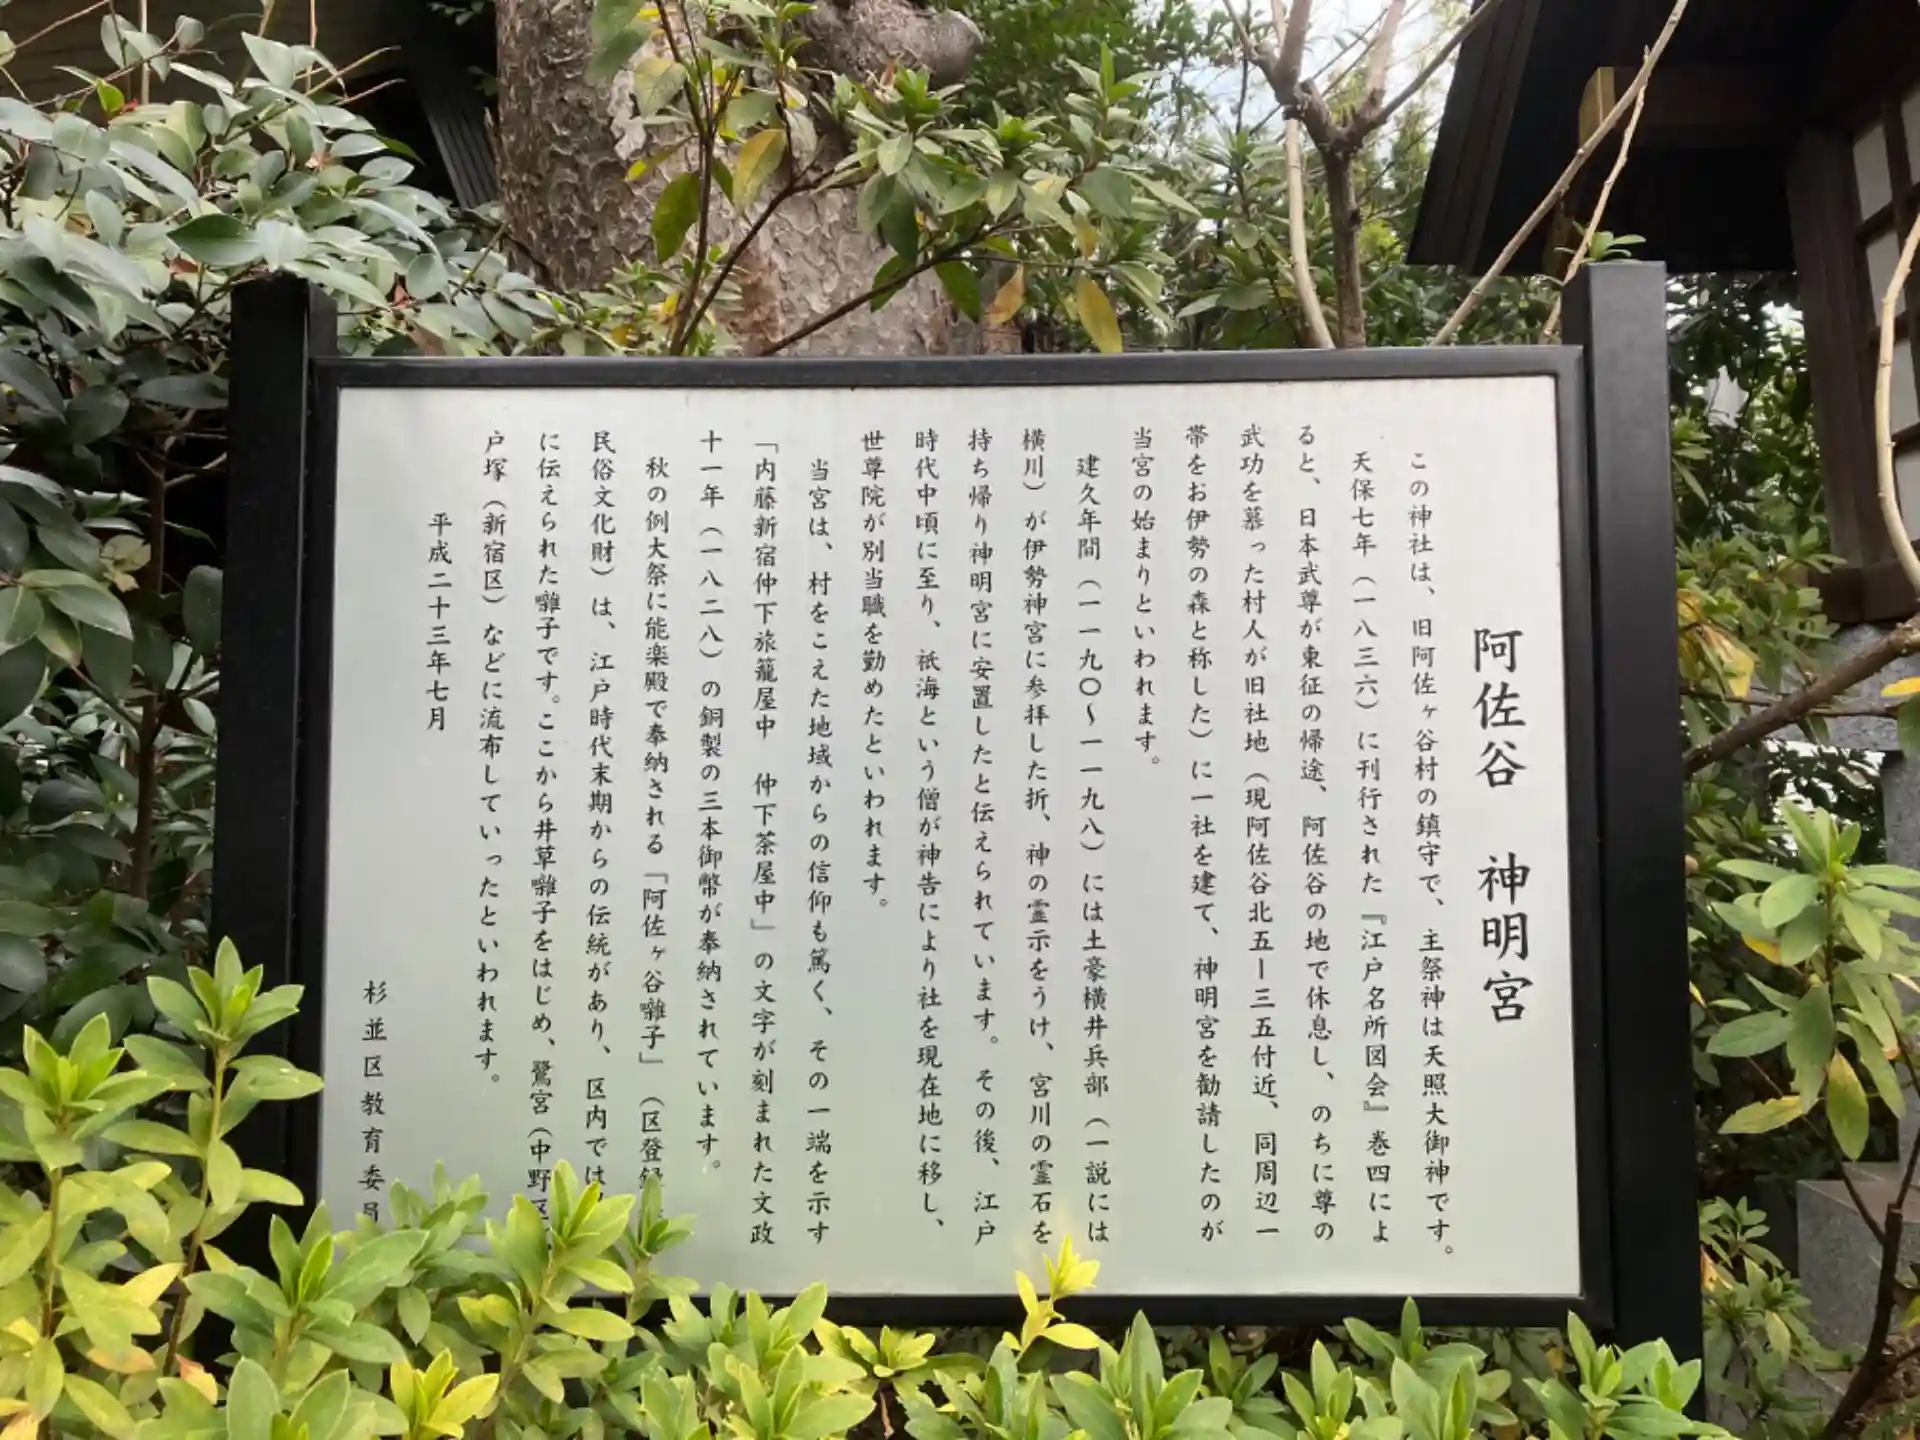 阿佐谷　神明宮
この神社は、旧阿佐ヶ谷村の鎮守で、主祭神は天照大御神です。
天保七年（一八三六）に刊行された『江戸名所図会』巻四によ
ると、日本武尊が東征の帰途、阿佐谷の地で休息し、のちに尊の
武功を慕った村人が旧社地（現阿佐谷北五ー三五付近、同周辺一
帯をお伊勢の森と称した）に一社を建て、神明宮を勧請したのが
当宮の始まりといわれます。
建久年間（一一九〇〜一一九八）には土豪横井兵部（一説には
横川）が伊勢神宮に参拝した折、神の霊示をうけ、宮川の霊石を
持ち帰り神明宮に安置したと伝えられています。その後、江戸
時代中頃に至り、祇海という僧が神告により社を現在地に移し、
世尊院が別当職を勤めたといわれます。
当宮は、村をこえた地域からの信仰も篤く、その一端を示す
「内藤新宿仲下旅籠屋中　仲下茶屋中」の文字が刻まれた文政
十一年（一八二八）の銅製の三本御幣が奉納されています。
秋の例大祭に能楽殿で奉納される「阿佐ヶ谷囃子」（区登録
民俗文化財）は、江戸時代末期からの伝統があり、区内では
に伝えられた囃子です。ここから井草囃子をはじめ、鷺宮（中野区
戸塚（新宿区）などに流布していったといわれます。
平成二十三年七月
杉並区教育委員